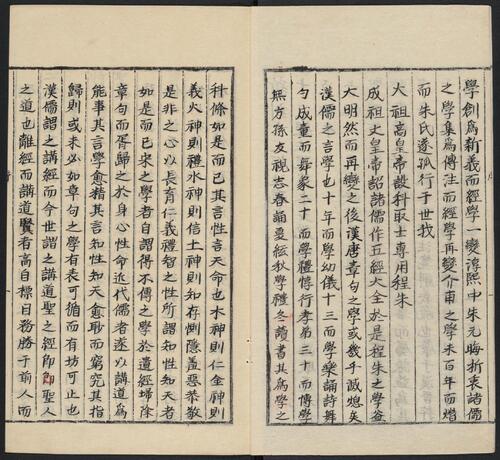 學創爲新義而經學一變淳熙中朱元晦折衷諸儒
之學集爲傳注而經學再變介甫之學未百年而熸
而朱氏遂孤行于世我
太祖高皇帝設科取士專用程朱
成祖文皇帝詔諸儒作五經大全於是程朱之學益
大明然而再變之後漢唐章句之學或幾乎滅熄矣
漢儒之言學也十年而學幼儀十三而學樂誦詩舞
勺成童而舞象二十而學禮惇行孝弟三十而博學
無方孫友視志春誦夏絃秋學禮冬讀書其爲學之
科條如是而已其言性言天命也木神則仁金神則
義火神則禮水神則信土神則知存惻隱羞惡恭敬
是非之心以長育仁義禮智之性所謂知性知天者
如是而已宋之學者自謂得不傳之學於遺經埽除
章句而胥歸之於身心性命近代儒者遂以講道爲
能事其言學愈精其言知性知天愈眇而窮究其指
歸則或未必如章句之學有表可循而有坊可止也
漢儒謂之講經而今世謂之講道聖之經卽聖人
之道也離經而講道賢者高自標目務勝于前人而